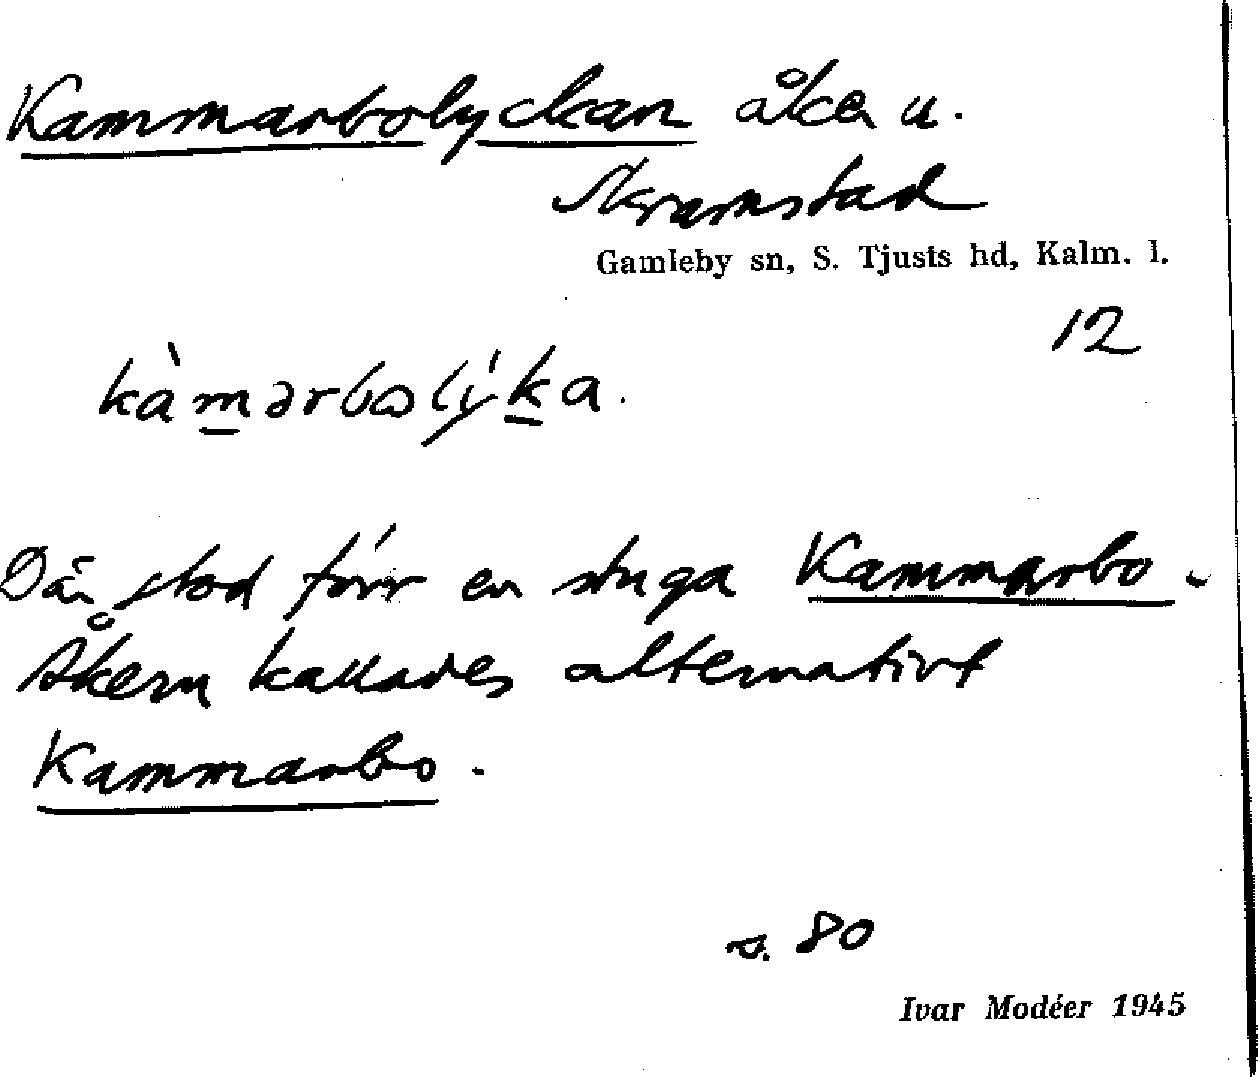 Kammarbolyckan åker u.
Skramstad
Gamleby sn, S. Tjusts hd, Kalm. l.
12
kàmərbolýka.
Där stod förr en stuga Kammarbo.
Åkern kallades alternativt
Kammarbo.
s. 80
Ivar Modéer 1945